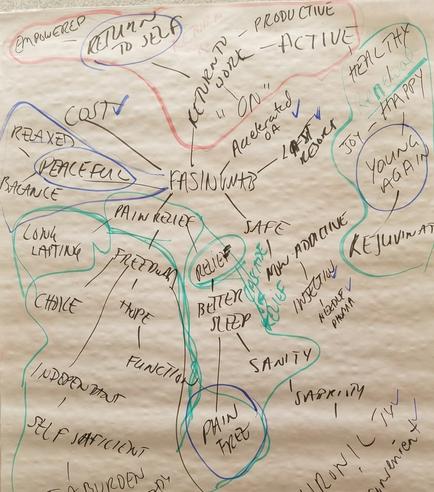 EMPOWERED
RETURN
TO SELF
RETURN TO
WORK
PRODUCTIVE
ACTIVE
"ON"
HEALTHY
HAPPY
JOY
YOUNG
AGAIN
COST
Accelerated
OA
LAST
RESORT
RELAXED
PEACEFUL
BALANCE
FASINUMAB
SAFE
PAIN RELIEF
LONG
LASTING
FREEDOM
RELIEF
NON ADDICTIVE
INJECTION
NEEDLE
PHOBIA
RELIEF
BETTER
SLEEP
CHOICE
HOPE
FUNCTION
SANITY
STABILITY
INDEPENDENT
SELF SUFFICIENT
PAIN
FREE
BURDEN